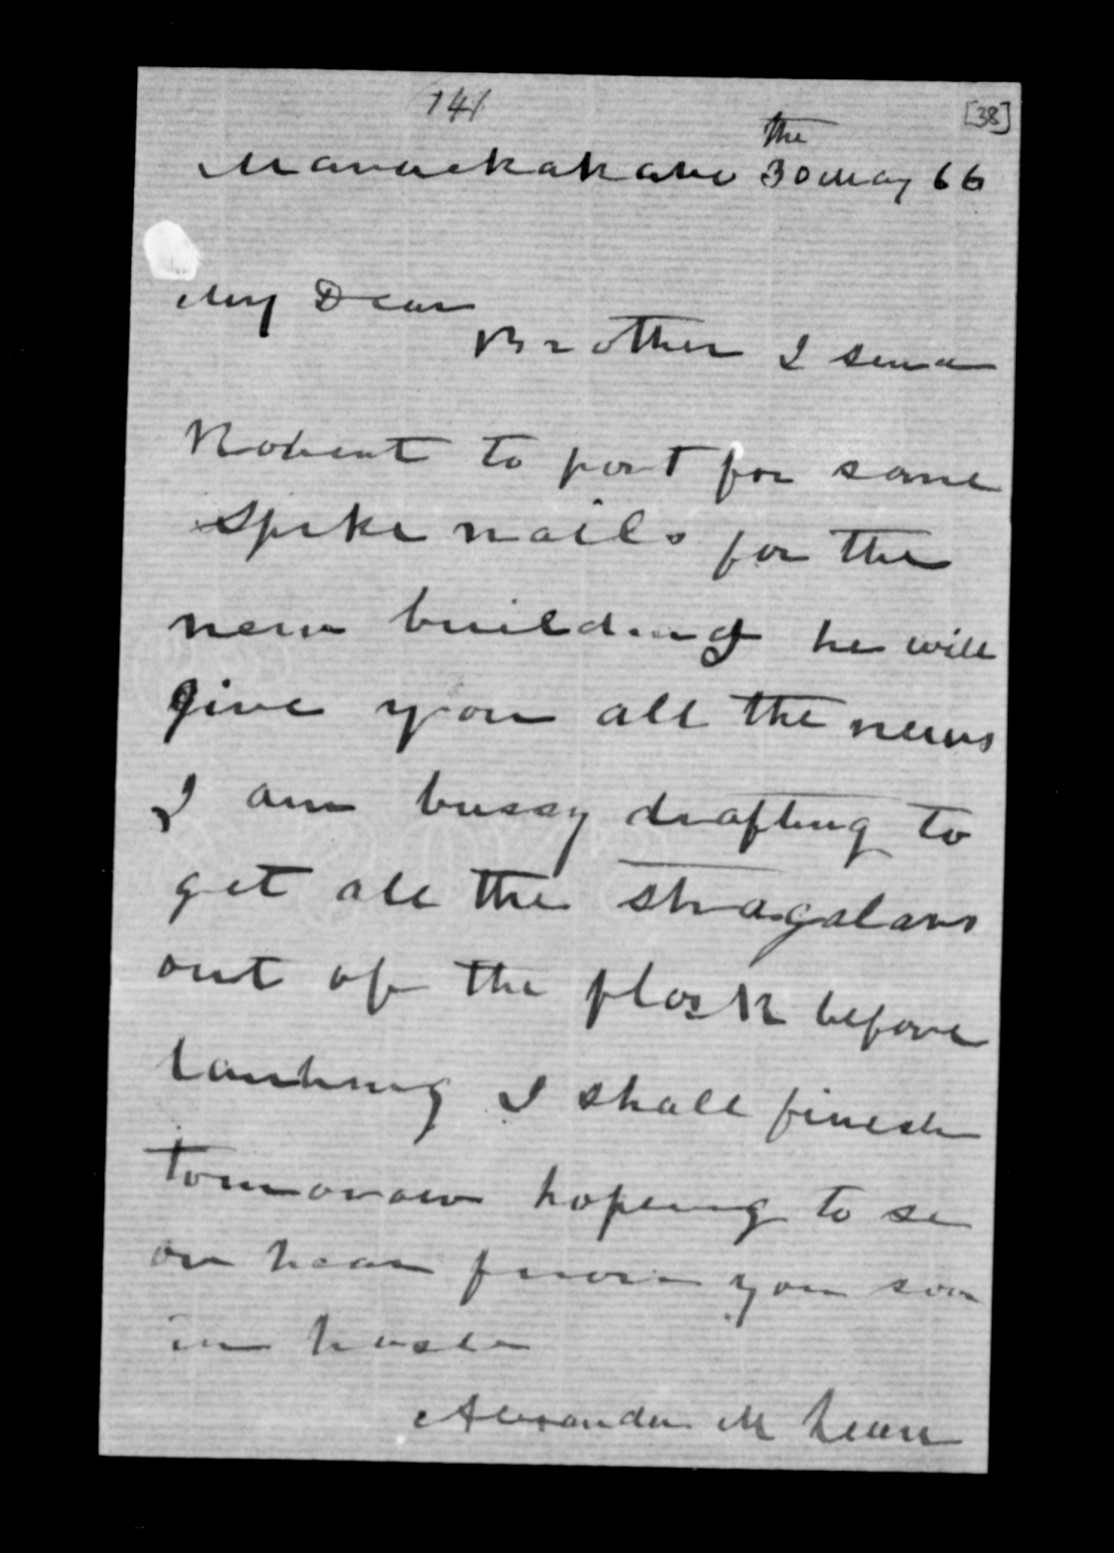 141
[38]
the
Maraekakaho 30 May 66
My Dear
Brother I send
Robert to port for some
Spike nails for the
new building he will
give you all the news
I am bussy drafting to
get all the stragalars
out of the flock before
tauhing I shall finesh
tomorrow hoping to se
or hear from you soon
in haste
Alexander McLean